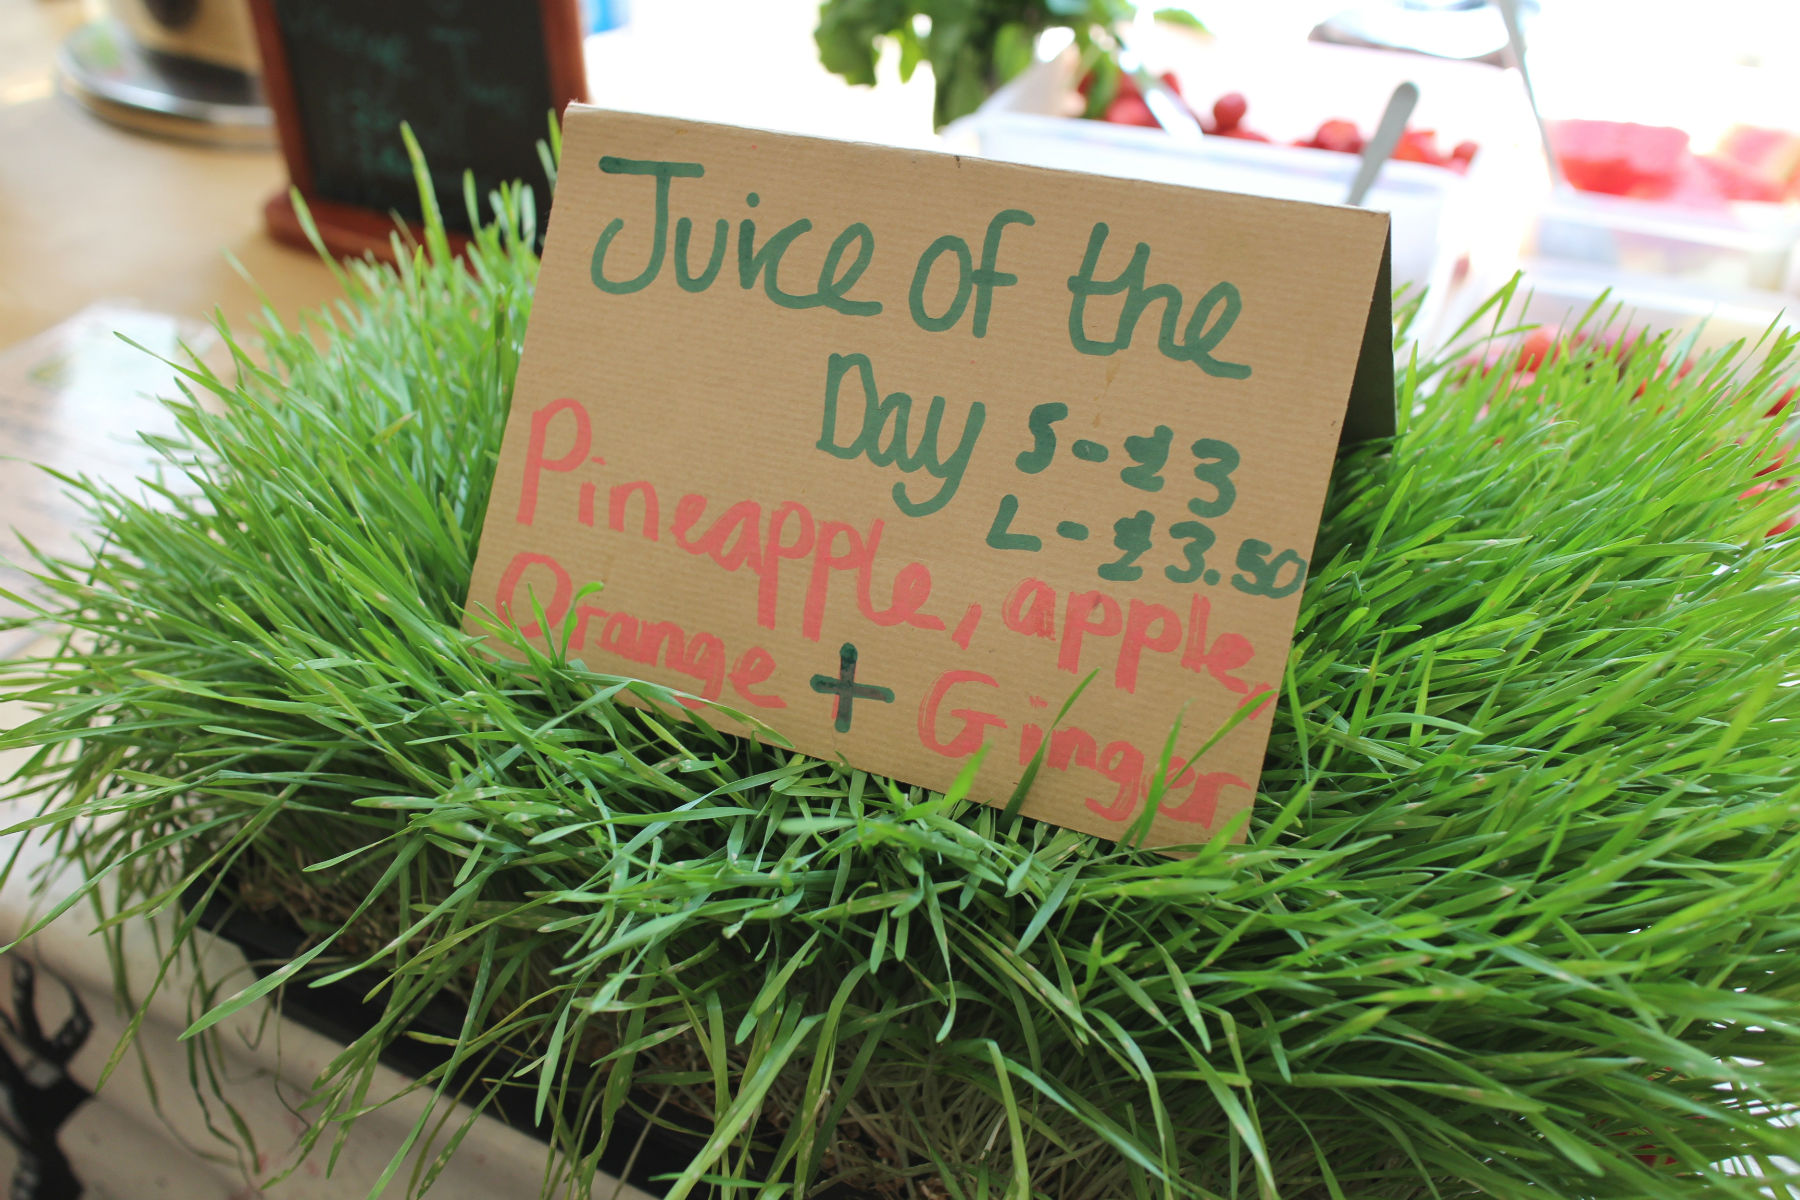 Juice of the
Day S-£3
L-£3.50
Pineapple, apple,
Orange + Ginger